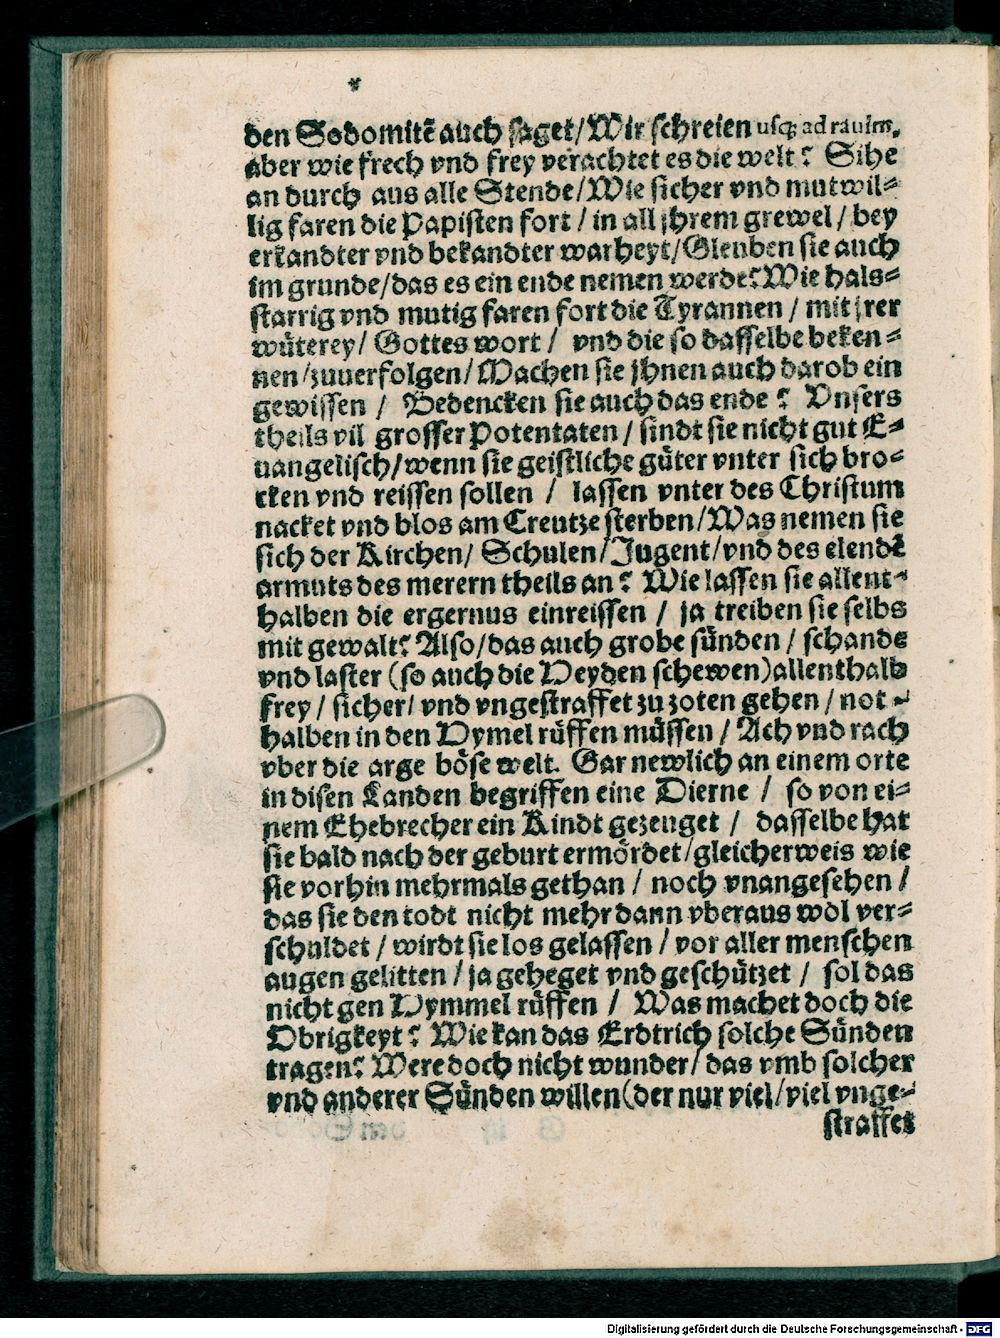 den Sodomitẽ auch saget/Wir schreien usq; ad rauim,
aber wie frech vnd frey verachtet es die welt? Sihe
an durch aus alle Stende/Wie sicher vnd mutwil=
lig faren die Papisten fort / in all jhrem grewel / bey
erkandter vnd bekandter warheyt/Gleuben sie auch
im grunde/das es ein ende nemen werde? Wie hals=
starrig vnd mutig faren fort die Tyrannen / mit jrer
wüterey/ Gottes wort / vnd die so dasselbe beken=
nen/zuuerfolgen/Machen sie jhnen auch darob ein
gewissen / Bedencken sie auch das ende? Vnsers
theils vil grosser Potentaten / sindt sie nicht gut E=
uangelisch/wenn sie geistliche güter vnter sich bro=
cken vnd reissen sollen / lassen vnter des Christum
nacket vnd blos am Creutze sterben/Was nemen sie
sich der Kirchen/ Schulen/Jugent/vnd des elendẽ
armuts des merern theils an? Wie lassen sie allent=
halben die ergernus einreissen / ja treiben sie selbs
mit gewalt? Also/das auch grobe sünden / schande
vnd laster (so auch die Heyden schewen)allenthalb
frey / sicher/ vnd vngestraffet zu zoten gehen / not=
halben in den Hymel rüffen müssen / Ach vnd rach
vber die arge böse welt. Gar newlich an einem orte
in disen Landen begriffen eine Dierne / so von ei=
nem Ehebrecher ein Kindt gezeuget / dasselbe hat
sie bald nach der geburt ermördet/gleicherweis wie
sie vorhin mehrmals gethan / noch vnangesehen /
das sie den todt nicht mehr dann vberaus wol ver=
schuldet / wirdt sie los gelassen / vor aller menschen
augen gelitten / ja geheget vnd geschützet / sol das
nicht gen Hymmel rüffen / Was machet doch die
Obrigkeyt? Wie kan das Erdtrich solche Sünden
tragen? Were doch nicht wunder/das vmb solcher
vnd anderer Sünden willen(der nur viel/viel vnge=
straffet
Digitalisierung gefördert durch die Deutsche Forschungsgemeinschaft - DFG